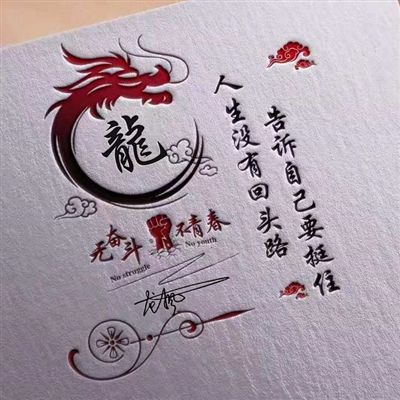 龍
无奋斗 不青春
No struggle No youth
人生没有回头路
告诉自己要挺住